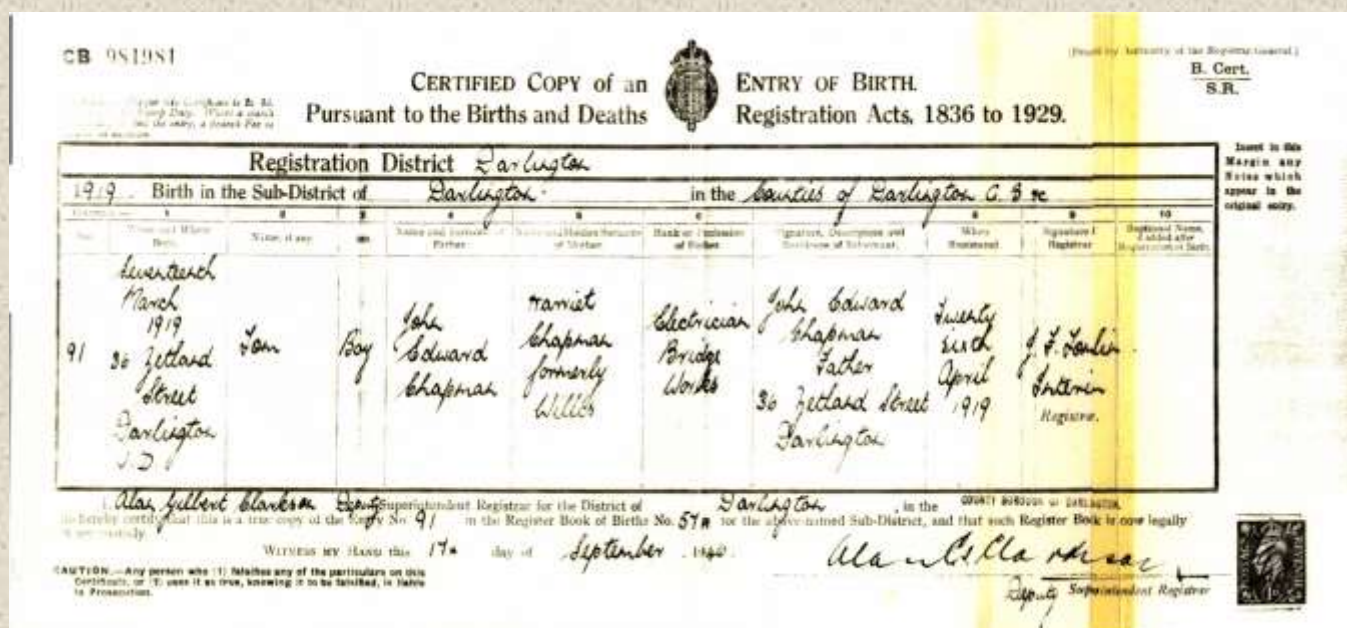 CB 981981
B. Cert.
S.R.
CERTIFIED COPY of an ENTRY OF BIRTH.
Pursuant to the Births and Deaths Registration Acts, 1836 to 1929.
Insert in this
Margin any
Notes which
appear in the
original entry.
Registration District Darlington
1919. Birth in the Sub-District of Darlington in the Counties of Darlington C. B
1 2 3 4 5 6 7 8 9 10
Name, if any
Name and Maiden Surname
of Mother
Rank or Profession
of Father
Signature, Description and
Residence of Informant.
When
Registered
Signature
Registrar
Baptismal Name,
if added after
Registration of Birth
91
Seventeenth
March
1919
36 Zetland
Street
Darlington
Tom
Boy
John
Edward
Chapman
Harriet
Chapman
formerly
Electrician
Bridge
Works
John Edward
Chapman
Father
36 Zetland Street
Darlington
Twenty
sixth
April
1919
Interim
Registrar.
Alan Gilbert Clarkson Deputy Superintendent Registrar for the District of Darlington, in the COUNTY BOROUGH OF DARLINGTON
hereby certify that this is a true copy of the Entry No. 91 in the Register Book of Births No. 57 for the above-named Sub-District, and that such Register Book is now legally
my custody.
WITNESS MY HAND this day of September
CAUTION.—Any person who (1) falsifies any of the particulars on this
Certificate, or (2) uses it as true, knowing it to be falsified, is liable
to Prosecution.
Deputy Superintendent Registrar